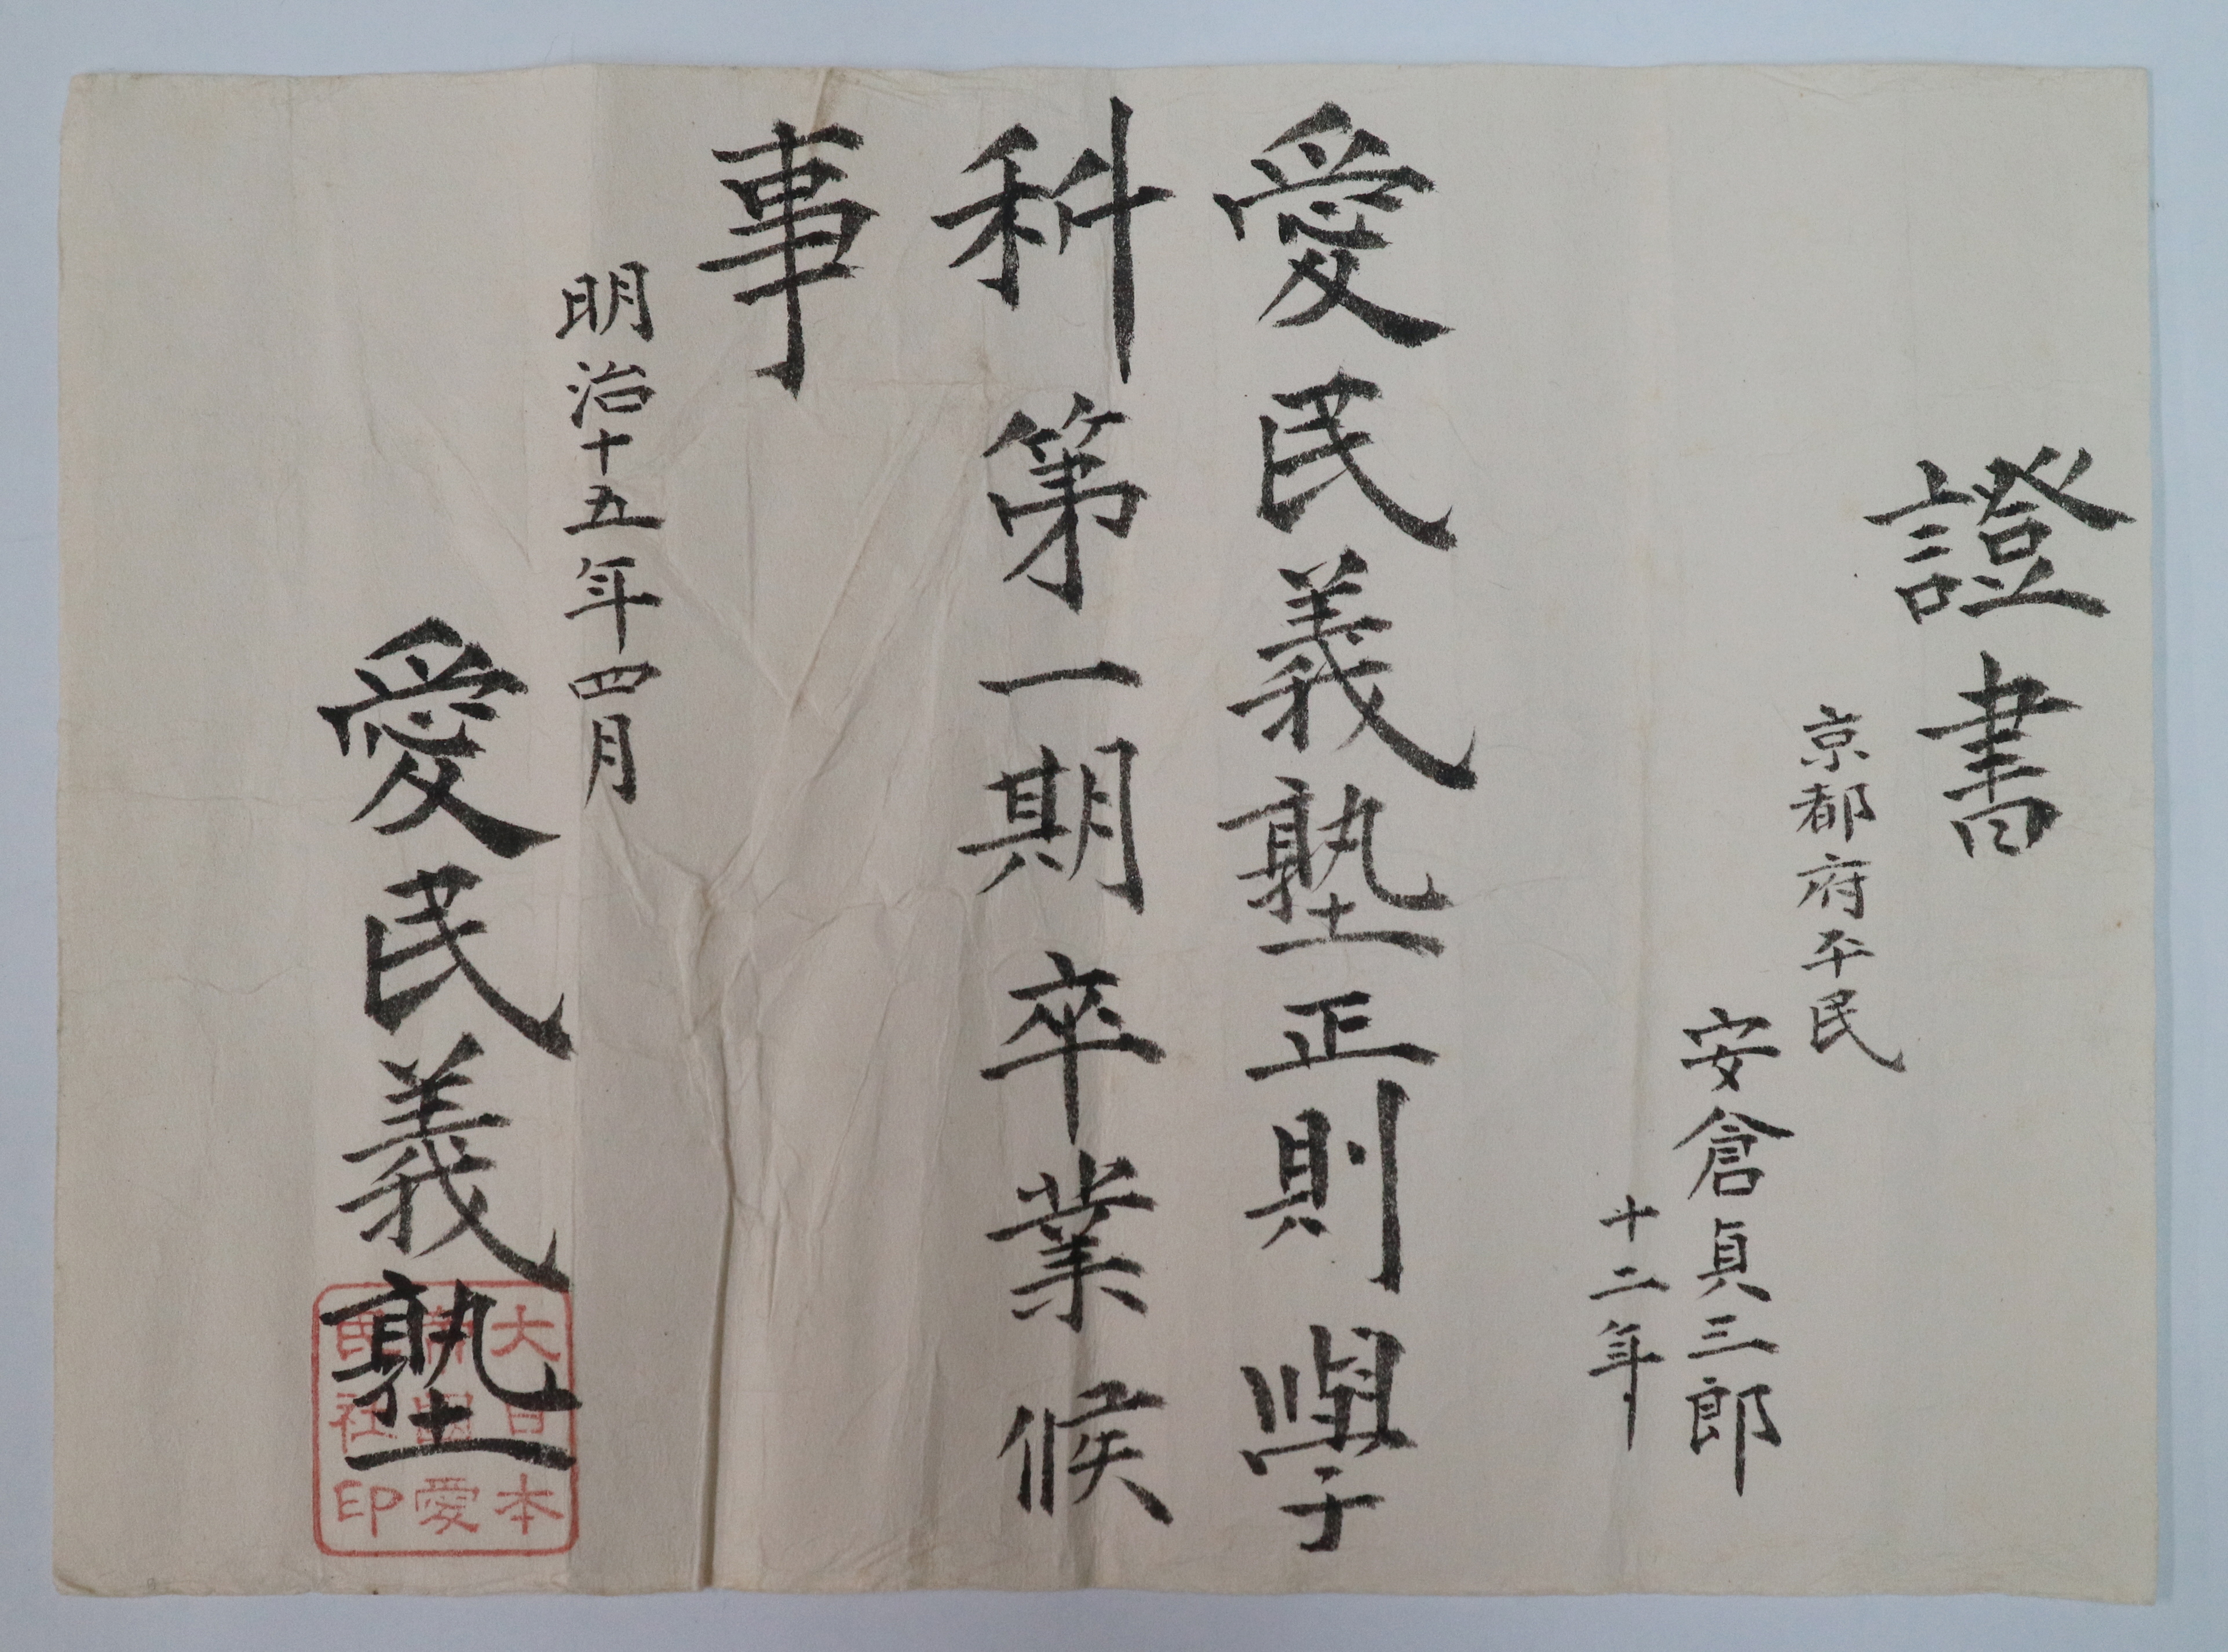 證書
京都府平民
安倉貞三郎
十二年
愛民義塾正則學
科第一期卒業候
事
明治十五年四月
愛民義塾
大日本
愛
民社印